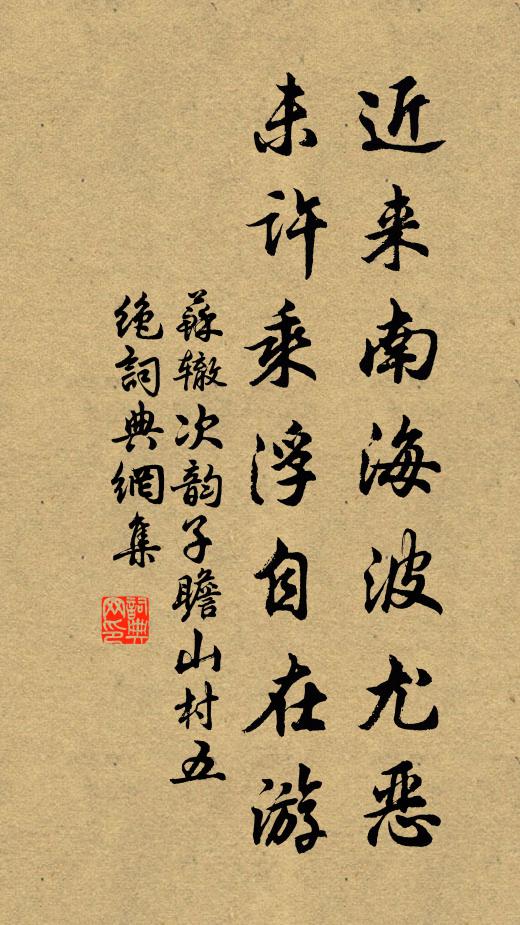 近来南海波尤恶
未许乘浮自在游
蘇辙次韵子瞻山村五
绝詞典網集
詞典
网印